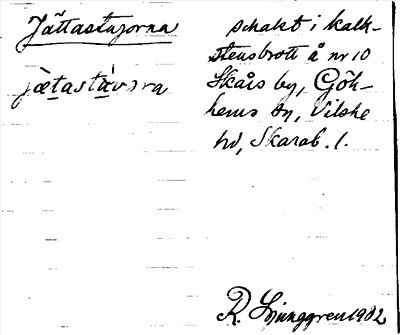 Jättastuvorna
jæ̀tastúvɔra
schakt i kalk-
stensbrott å nr 10
Skårs by, Gök-
hems sn, Vilske
hd, Skarab. l.
R. Ljunggren 1982